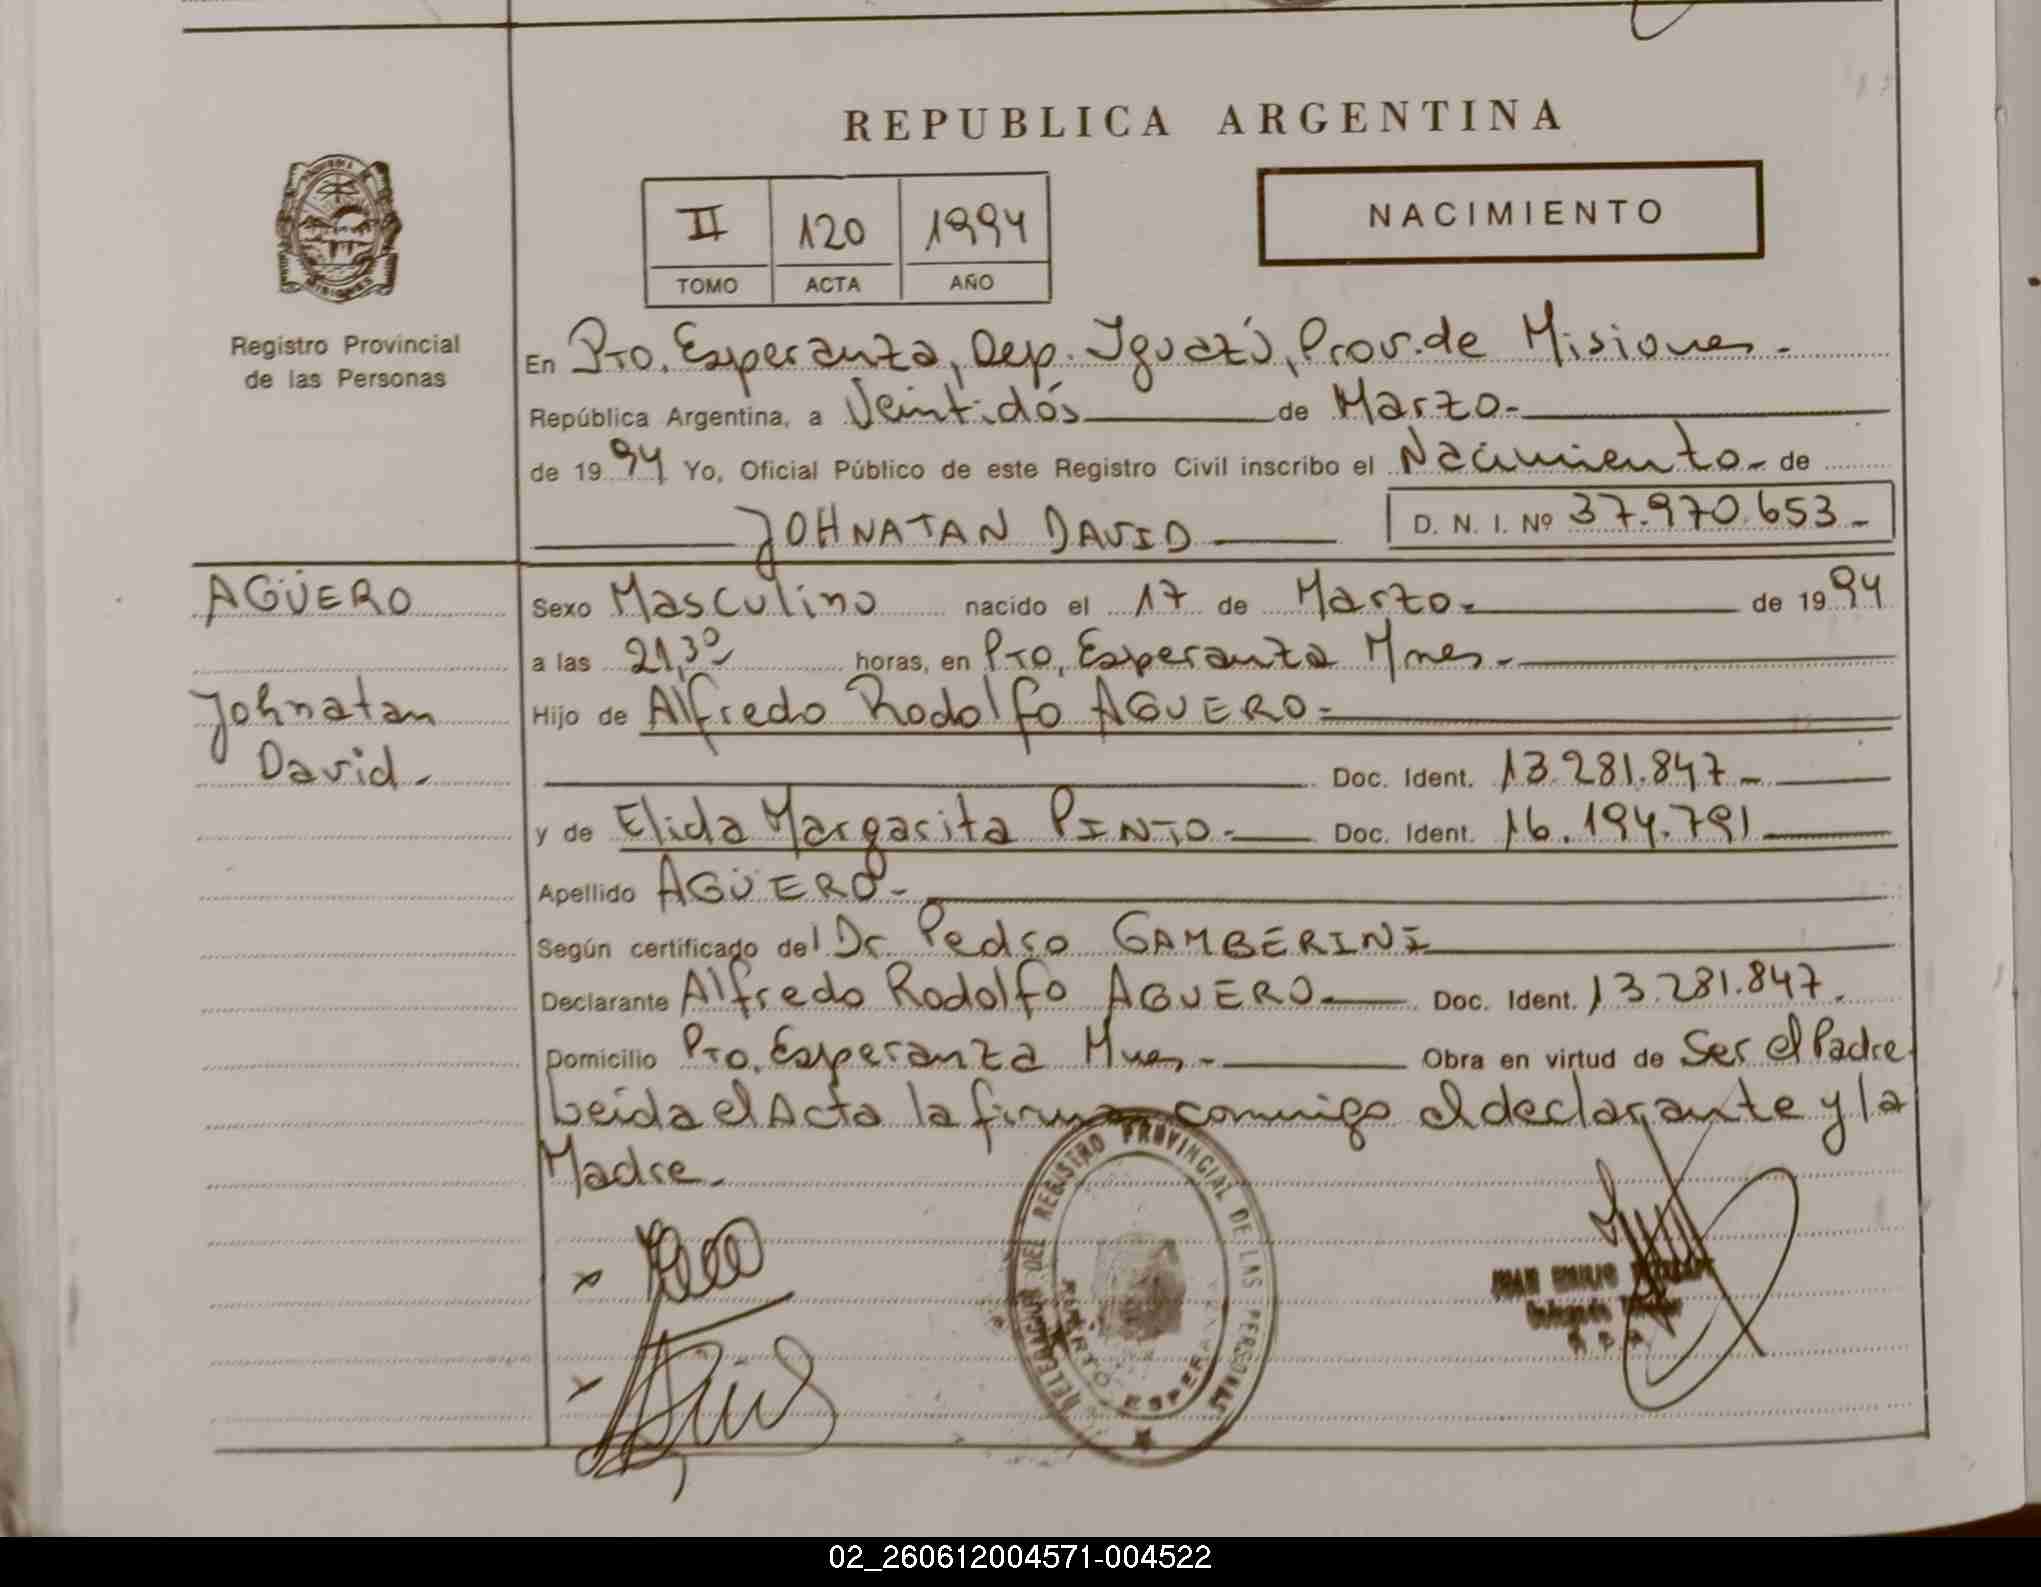 REPUBLICA ARGENTINA
II 120 1994
TOMO ACTA AÑO
NACIMIENTO
Registro Provincial
de las Personas
En Pto. Esperanza, Dep. Iguazú, Prov. de Misiones.-
República Argentina, a Veintidós de Marzo.-
de 1994 Yo, Oficial Público de este Registro Civil inscribo el Nacimiento.- de
JOHNATAN DAVID D. N. I. Nº 37.970.653.-
AGÜERO
Johnatan
David.-
Sexo Masculino nacido el 17 de Marzo.- de 1994
a las 21,30 horas, en Pto. Esperanza Mnes.-
Hijo de Alfredo Rodolfo AGUERO.-
Doc. Ident. 13.281.847.-
y de Elida Margarita PINTO.- Doc. Ident. 16.194.791
Apellido AGÜERO.-
Según certificado del Dr. Pedro GAMBERINI
Declarante Alfredo Rodolfo AGUERO.- Doc. Ident. 13.281.847.
Domicilio Pto. Esperanza Mnes.- Obra en virtud de Ser el Padre
Leida el Acta la firma conmigo el declarante y la
Madre.-
DELEGACION DEL REGISTRO PROVINCIAL DE LAS PERSONAS
PUERTO ESPERANZA
02_260612004571-004522